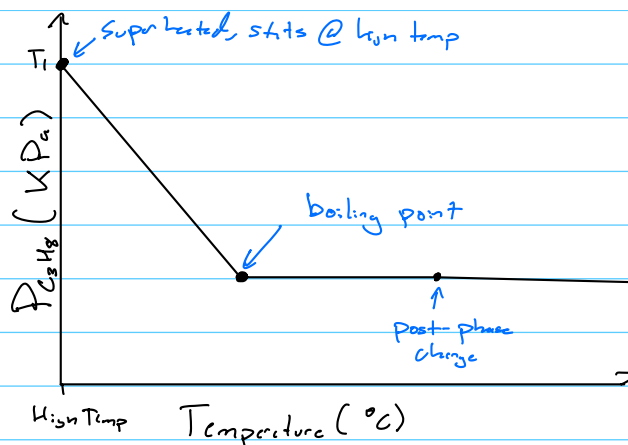 superheated, starts @ high temp
T1
P C3H8 (KPa)
boiling point
post-phase
change
High Temp
Temperature (°C)